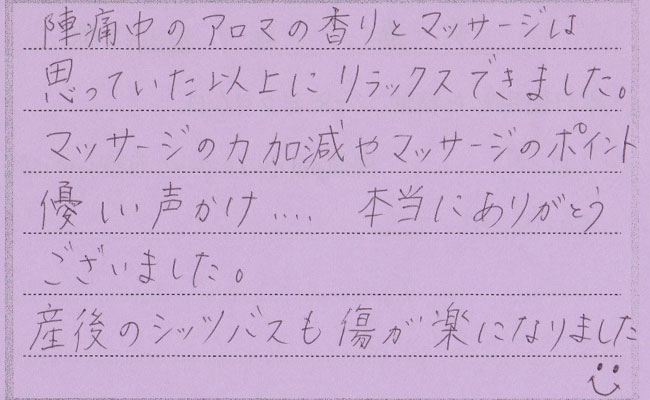 陣痛中のアロマの香りとマッサージは
思っていた以上にリラックスできました。
マッサージの力加減やマッサージのポイント
優しい声かけ.... 本当にありがとう
ございました。
産後のシッツバスも傷が楽になりました